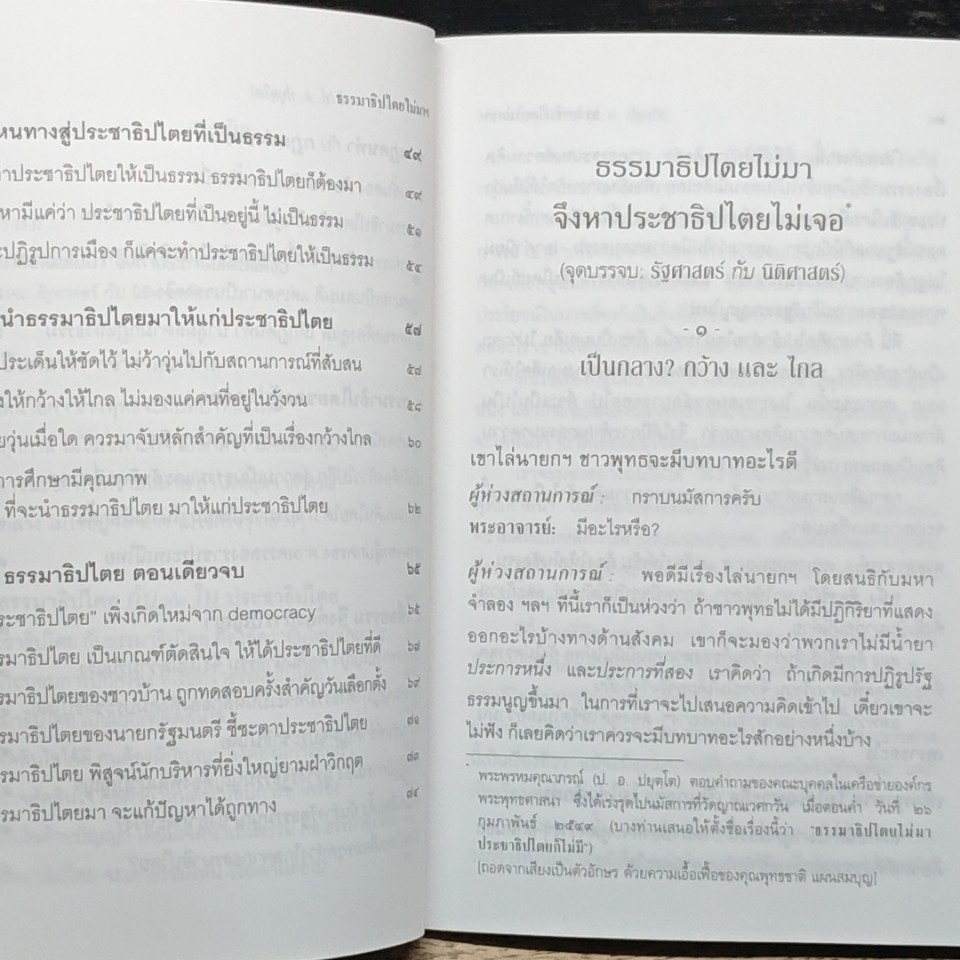 ธรรมาธิปไตยไม่มาฯ
หนทางสู่ประชาธิปไตยที่เป็นธรรม ๔๙
ประชาธิปไตยให้เป็นธรรม ธรรมาธิปไตยก็ต้องมา ๔๙
หามีแค่ว่า ประชาธิปไตยที่เป็นอยู่นี้ ไม่เป็นธรรม ๕๑
ะปฏิรูปการเมือง ก็แค่จะทำประชาธิปไตยให้เป็นธรรม ๕๔
นำธรรมาธิปไตยมาให้แก่ประชาธิปไตย ๕๗
ประเด็นให้ชัดไว้ ไม่ว้าวุ่นไปกับสถานการณ์ที่สับสน ๕๘
ให้กว้างให้ไกล ไม่มองแค่คนที่อยู่ในวังวน ๕๘
ยวุ่นเมื่อใด ควรมาจับหลักสำคัญที่เป็นเรื่องกว้างไกล ๖๐
การศึกษามีคุณภาพ
ที่จะนำธรรมาธิปไตย มาให้แก่ประชาธิปไตย ๖๒
ธรรมาธิปไตย ตอนเดียวจบ ๖๕
ระชาธิปไตย" เพิ่งเกิดใหม่จาก democracy ๖๕
รมาธิปไตย เป็นเกณฑ์ตัดสินใจ ให้ได้ประชาธิปไตยที่ดี ๖๗
รมาธิปไตยของชาวบ้าน ถูกทดสอบครั้งสำคัญวันเลือกตั้ง ๖๙
รมาธิปไตยของนายกรัฐมนตรี ชี้ชะตาประชาธิปไตย ๗๑
รมาธิปไตย พิสูจน์นักบริหารที่ยิ่งใหญ่ยามฝ่าวิกฤต
รมาธิปไตยมา จะแก้ปัญหาได้ถูกทาง ๗๔
ธรรมาธิปไตยไม่มา
จึงหาประชาธิปไตยไม่เจอ*
(จุดบรรจบ: รัฐศาสตร์ กับ นิติศาสตร์)
- ๑ -
เป็นกลาง? กว้าง และ ไกล
เขาไล่นายกฯ ชาวพุทธจะมีบทบาทอะไรดี
ผู้ห่วงสถานการณ์ : กราบนมัสการครับ
พระอาจารย์: มีอะไรหรือ?
ผู้ห่วงสถานการณ์ : พอดีมีเรื่องไล่นายกฯ โดยสนธิกับมหา
จำลอง ฯลฯ ทีนี้เราก็เป็นห่วงว่า ถ้าชาวพุทธไม่ได้มีปฏิกิริยาที่แสดง
ออกอะไรบ้างทางด้านสังคม เขาก็จะมองว่าพวกเราไม่มีน้ำยา
ประการหนึ่ง และประการที่สอง เราคิดว่า ถ้าเกิดมีการปฏิรูปรัฐ
ธรรมนูญขึ้นมา ในการที่เราจะไปเสนอความคิดเข้าไป เดี๋ยวเขาจะ
ไม่ฟัง ก็เลยคิดว่าเราควรจะมีบทบาทอะไรสักอย่างหนึ่งบ้าง
* พระพรหมคุณาภรณ์ (ป. อ. ปยุตฺโต) ตอบคำถามของคณะบุคคลในเครือข่ายองค์กร
พระพุทธศาสนา ซึ่งได้เร่งรุดไปนมัสการที่วัดญาณเวศกวัน เมื่อตอนค่ำ วันที่ ๒๖
กุมภาพันธ์ ๒๕๔๙ (บางท่านเสนอให้ตั้งชื่อเรื่องนี้ว่า "ธรรมาธิปไตยไม่มา
ประชาธิปไตยก็ไม่มี")
[ถอดจากเสียงเป็นตัวอักษร ด้วยความเอื้อเฟื้อของคุณพุทธชาติ แผนสมบุญ]